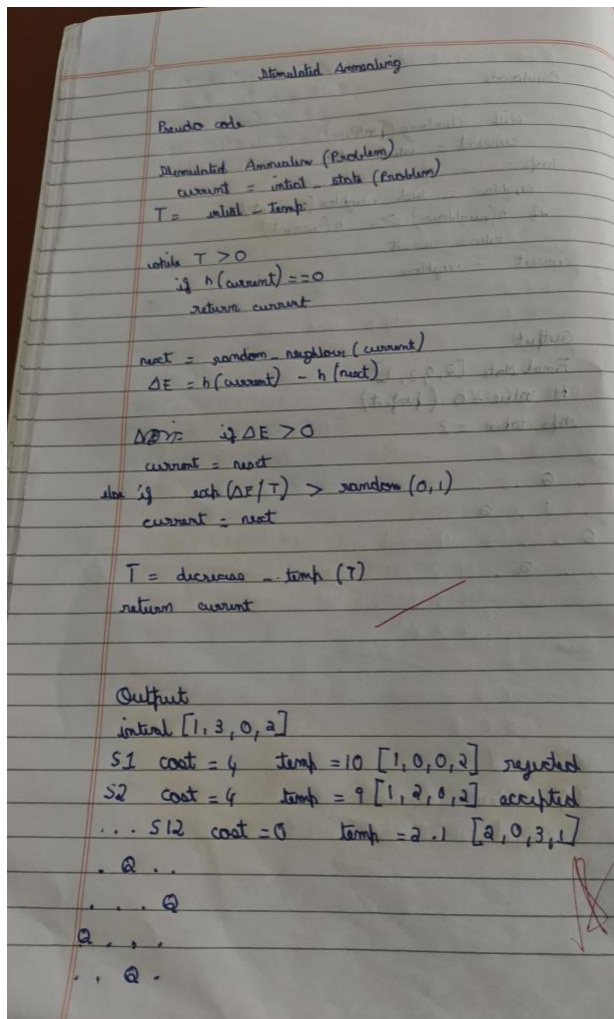 Stimulated Annealing
Pseudo code
Stimulated Annealin (Problem)
current = intial - state (Problem)
T = intial - temp.
while T > 0
if h (current) == 0
return current
next = random - neighbour (current)
ΔE = h (current) - h (next)
if ΔE > 0
current = next
else if exp (ΔE/T) > random (0, 1)
current = next
T = decrease - temp (T)
return current
Output
intial [1, 3, 0, 2]
S1 cost = 4 temp = 10 [1, 0, 0, 2] rejected
S2 cost = 4 temp = 9 [1, 2, 0, 2] accepted
... S12 cost = 0 temp = 2.1 [2, 0, 3, 1]
. Q . .
. . . Q
Q . . .
. . Q .